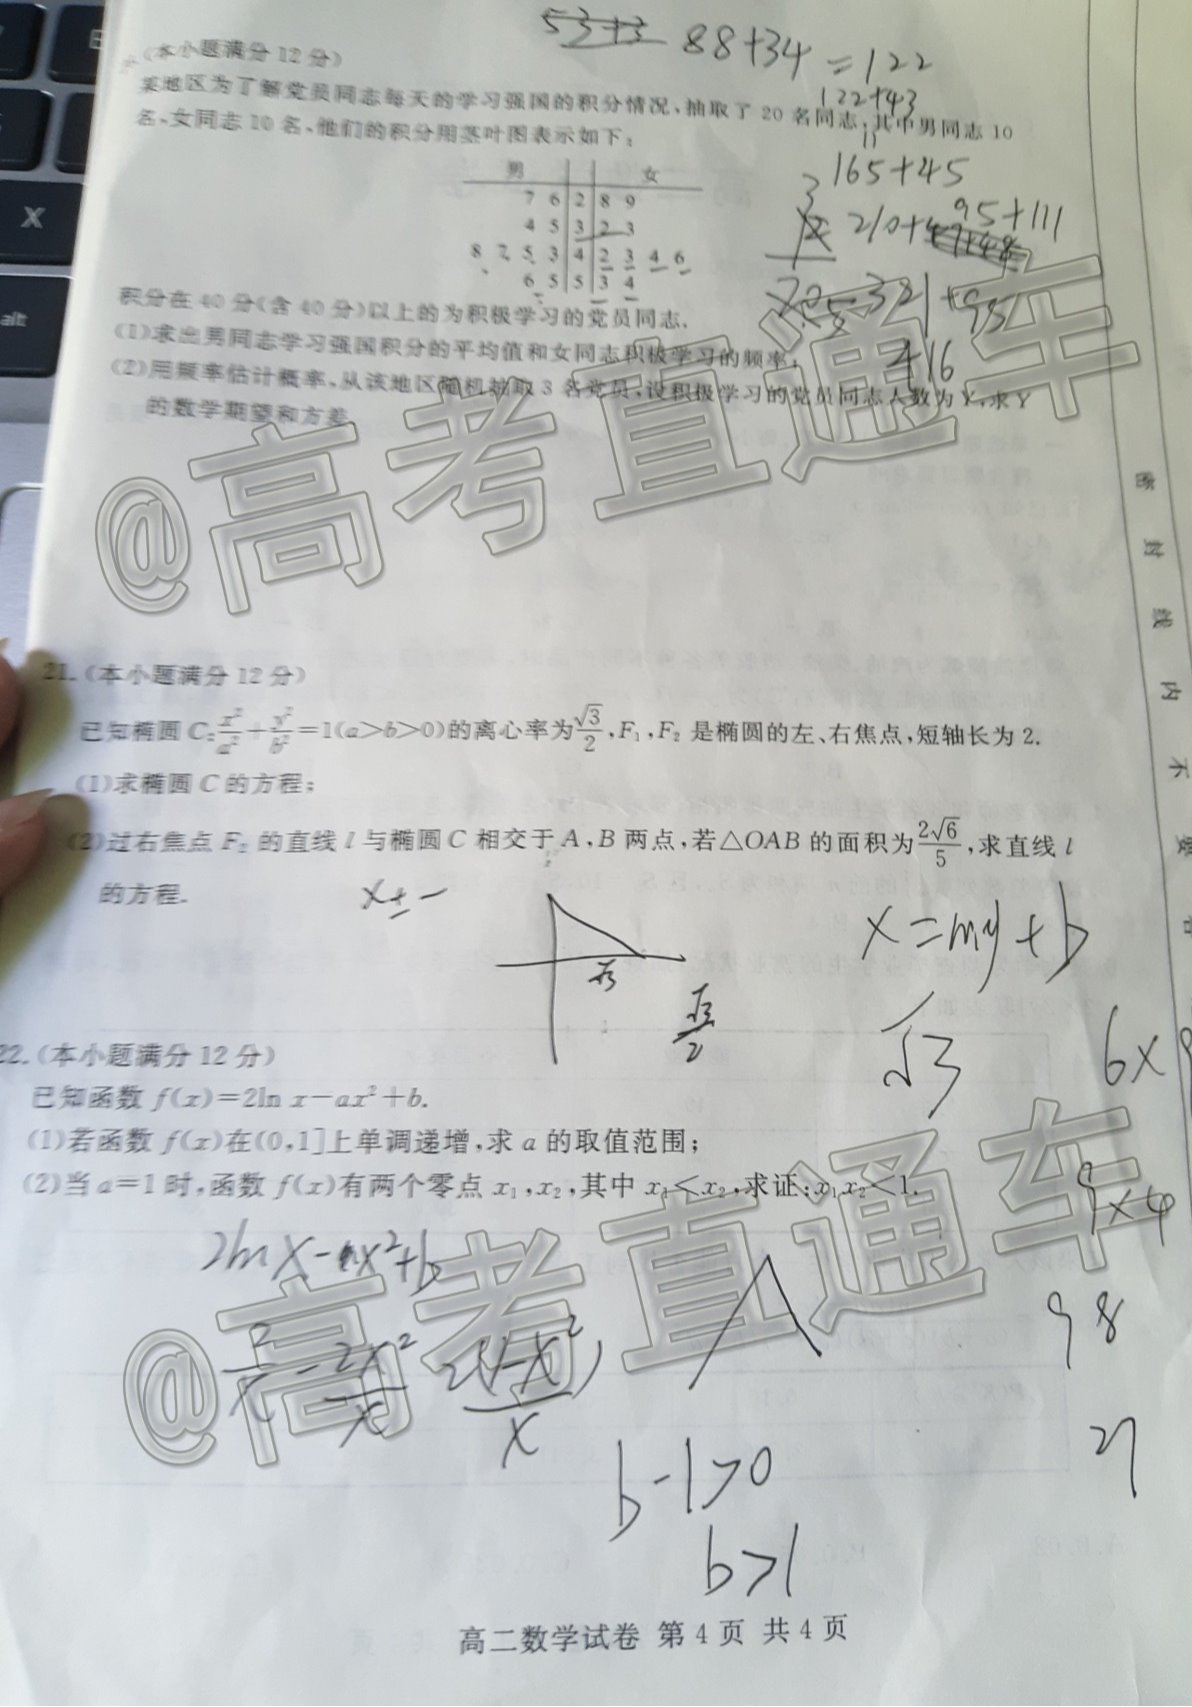 53+3 88+34=122
(本小题满分12分)
122+43
某地区为了解党员同志每天的学习强国的积分情况,抽取了20名同志,其中男同志10
名、女同志10名、他们的积分用茎叶图表示如下:
165+45
男 女
7 6 2 8 9
95+111
210+
4 5 3 2 3
8 7 5 3 4 2 3 4 6
6 5 5 3 4
321+95
416
积分在40分(含40分)以上的为积极学习的党员同志.
(1)求出男同志学习强国积分的平均值和女同志积极学习的频率;
(2)用频率估计概率,从该地区随机抽取3名党员,设积极学习的党员同志人数为Y,求Y
的数学期望和方差.
@高考直通车
密封线内不要答
21.(本小题满分12分)
已知椭圆C:x²/a²+y²/b²=1(a>b>0)的离心率为√3/2,F₁,F₂是椭圆的左、右焦点,短轴长为2.
(1)求椭圆C的方程;
(2)过右焦点F₂的直线l与椭圆C相交于A,B两点,若△OAB的面积为2√6/5,求直线l
的方程.
x=my+b
√3
√3
√3/2
6×9
22.(本小题满分12分)
已知函数f(x)=2ln x-ax²+b.
(1)若函数f(x)在(0,1]上单调递增,求a的取值范围;
(2)当a=1时,函数f(x)有两个零点x₁,x₂,其中x₁<x₂,求证:x₁x₂<1.
9×4
98
@高考直通车
b-1>0
b>1
高二数学试卷 第4页 共4页